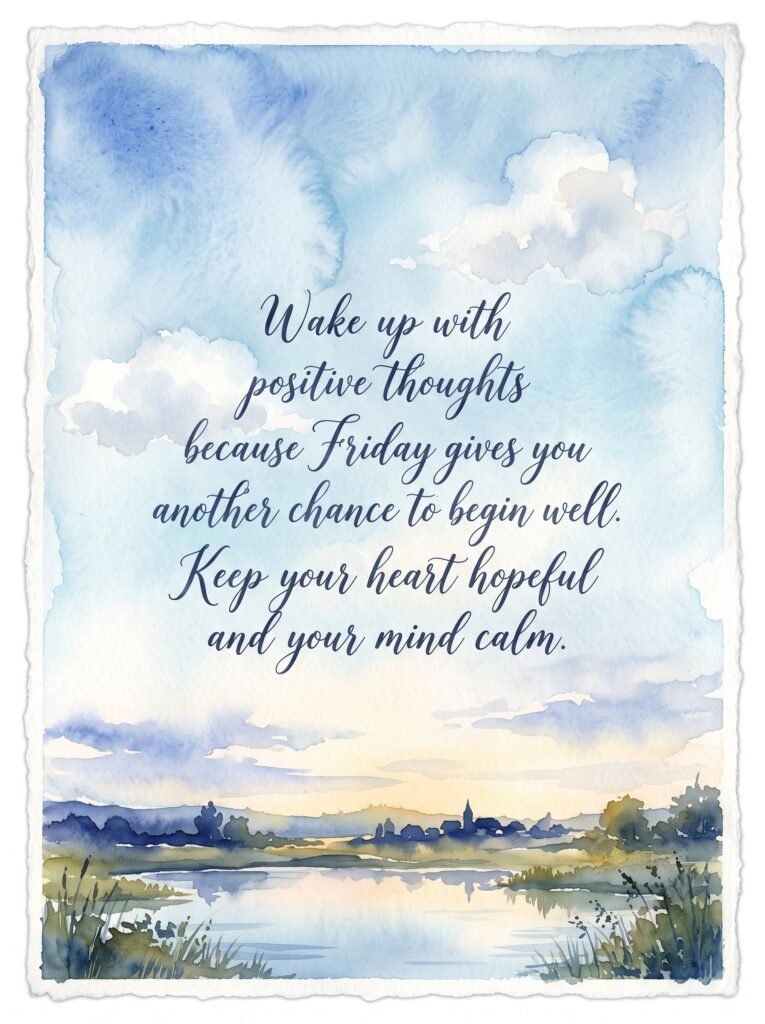 Wake up with
positive thoughts
because Friday gives you
another chance to begin well.
Keep your heart hopeful
and your mind calm.